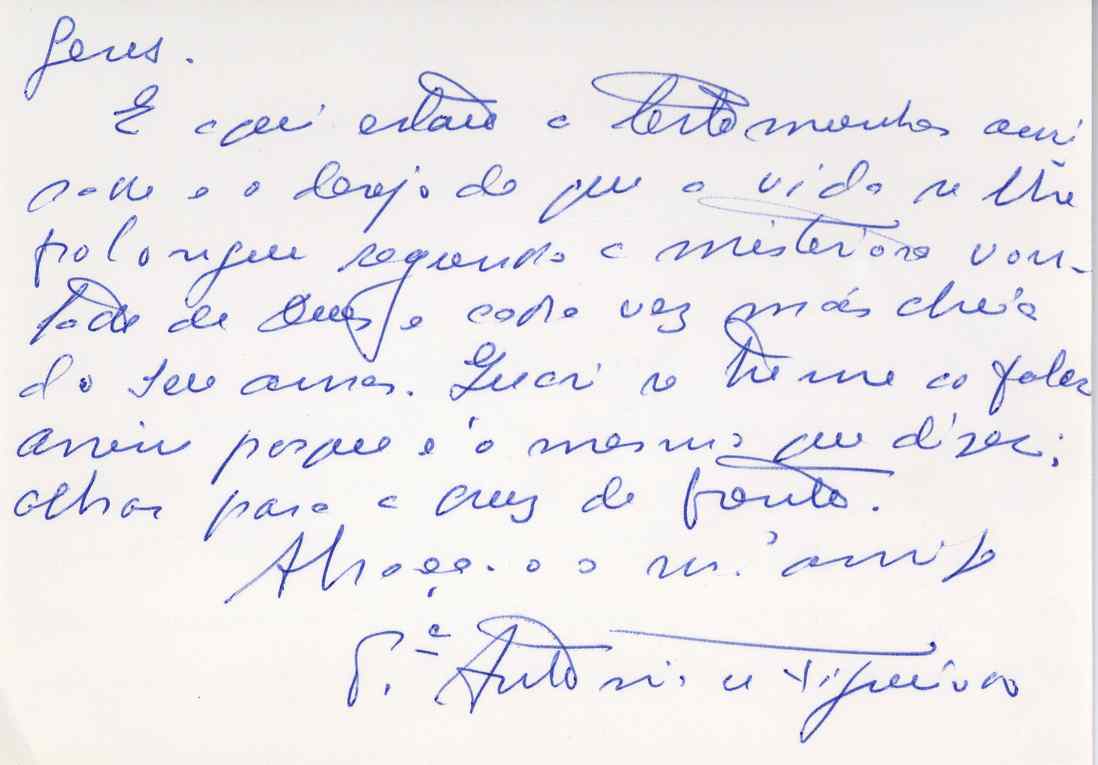 Geres.
E aqui estão a testemunhar ami
sade e o desejo de que a vida se lhe
prolongue segundo a misteriosa von-
tade de Deus e cada vez mais cheia
do seu amor. Sueri se treme ao falar
assim porque é o mesmo que dizer:
olhar para a cruz de frente.
Abraça-o o seu amigo
P.e António